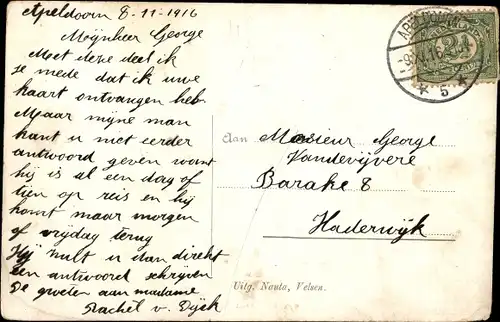 Apeldoorn 8-11-1916
Mojnheer George
Met deze deel ik
je mede dat ik uwe
kaart ontvangen heb
Maar mijne man
kant u niet eerder
antwoord geven want
hij is al een dag of
tien op reis en hij
komt maar morgen
of vrijdag terug
Hij zult u dan direkt
een antwoord schrijven
De groeten aan madame
Rachel v. Dijck
APELDOORN
5
Aan
Mosieur George
Vandevijvere
Barake 8
Haderwijk
Uitg. Nauta, Velsen.